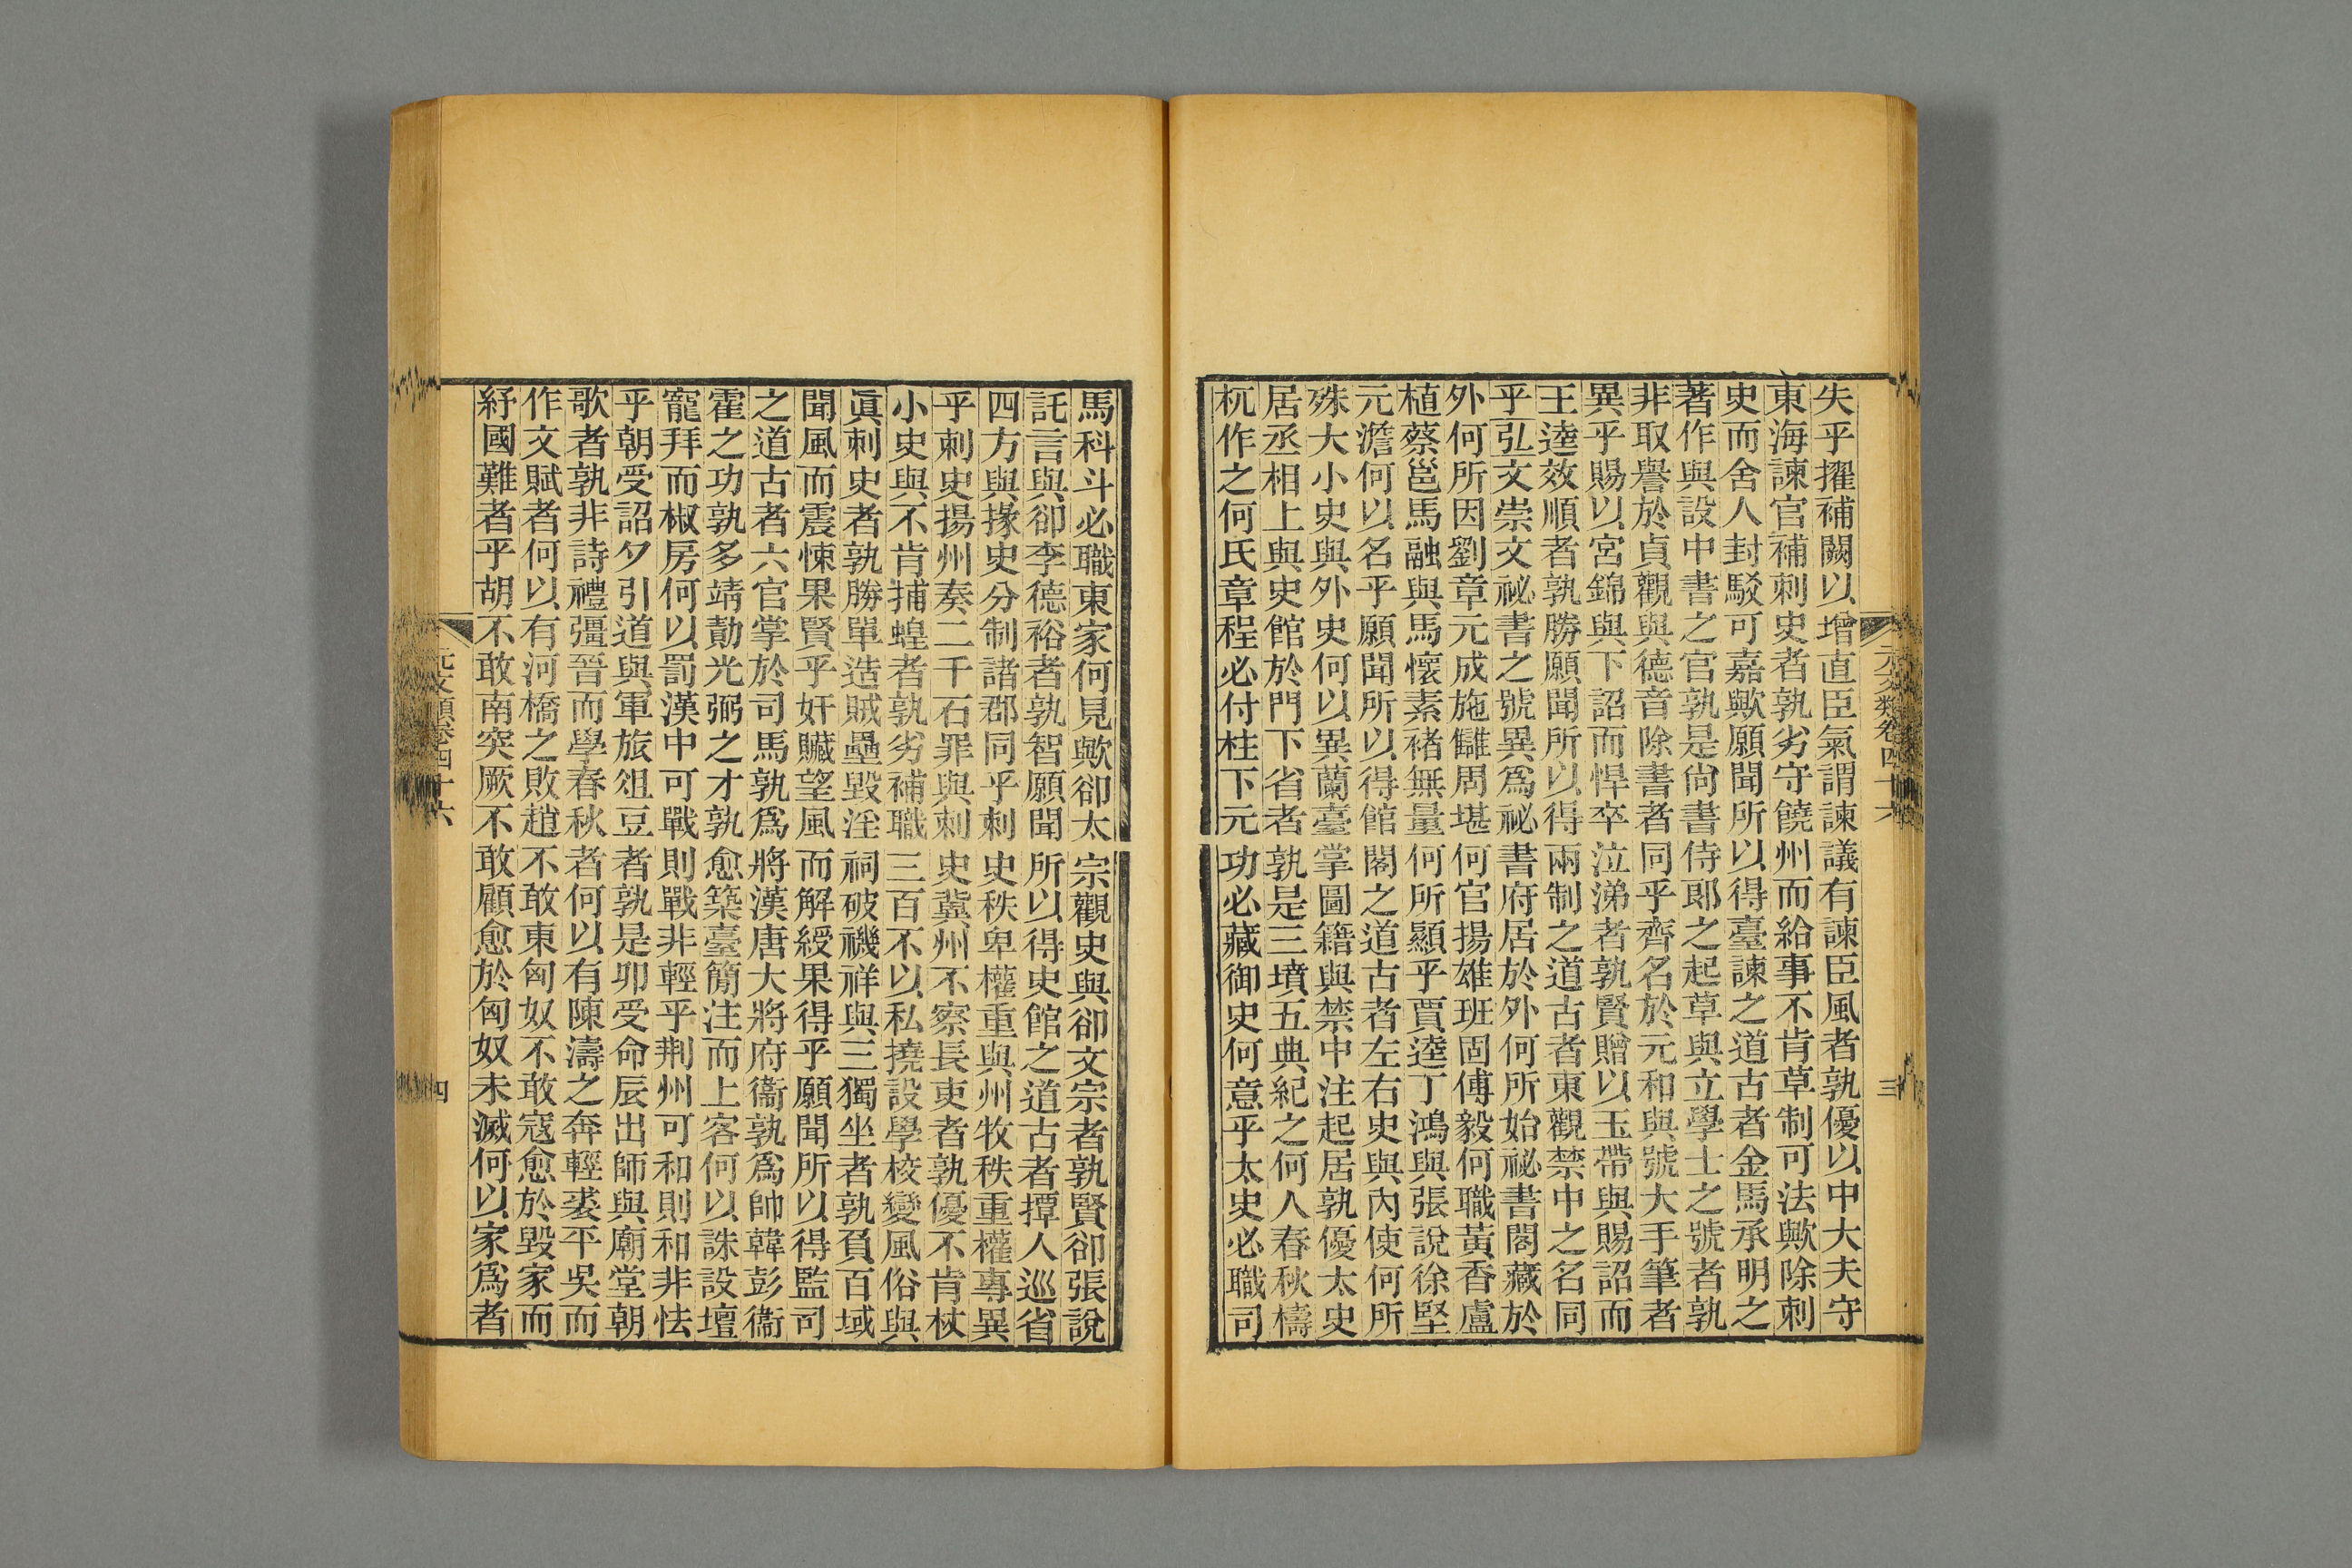 元文類卷四十六
三
失乎擢補闕以增直臣氣謂諫議有諫臣風者孰優以中大夫守
東海諫官補刺史者孰劣守饒州而給事不肯草制可法歟除刺
史而舍人封駁可嘉歟願聞所以得臺諫之道古者金馬承明之
著作與設中書之官孰是尙書侍郞之起草與立學士之號者孰
非取譽於貞觀與德音除書者同乎齊名於元和與號大手筆者
異乎賜以宮錦與下詔而悍卒泣涕者孰賢贈以玉帶與賜詔而
王逵效順者孰勝願聞所以得兩制之道古者東觀禁中之名同
乎弘文崇文祕書之號異爲祕書府居於外何所始祕書閣藏於
外何所因劉章元成施讎周堪何官揚雄班固傅毅何職黃香盧
植蔡邕馬融與馬懷素褚無量何所顯乎賈逵丁鴻與張說徐堅
元澹何以名乎願聞所以得館閣之道古者左右史與內使何所
殊大小史與外史何以異蘭臺掌圖籍與禁中注起居孰優太史
居丞相上與史館於門下省者孰是三墳五典紀之何人春秋檮
杌作之何氏章程必付柱下元功必藏御史何意乎太史必職司
馬科斗必職東家何見歟卻太宗觀史與卻文宗者孰賢卻張說
託言與卻李德裕者孰智願聞所以得史館之道古者撢人巡省
四方與掾史分制諸郡同乎刺史秩卑權重與州牧秩重權專異
乎刺史揚州奏二千石罪與刺史冀州不察長吏者孰優不肯杖
小史與不肯捕蝗者孰劣補職三百不以私撓設學校變風俗與
眞刺史者孰勝單造賊壘毀淫祠破禨祥與三獨坐者孰負百城
聞風而震悚果賢乎奸贓望風而解綬果得乎願聞所以得監司
之道古者六官掌於司馬孰爲將漢唐大將府衞孰爲帥韓彭衞
霍之功孰多靖勣光弼之才孰愈築臺簡注而上客何以誅設壇
寵拜而椒房何以罰漢中可戰則戰非輕乎荆州可和則和非怯
乎朝受詔夕引道與軍旅俎豆者孰是卯受命辰出師與廟堂朝
歌者孰非詩禮彊晉而學春秋者何以有陳濤之奔輕裘平吳而
作文賦者何以有河橋之敗趙不敢東匈奴不敢寇愈於毀家而
紓國難者乎胡不敢南突厥不敢顧愈於匈奴未滅何以家爲者
元文類卷四十六
四